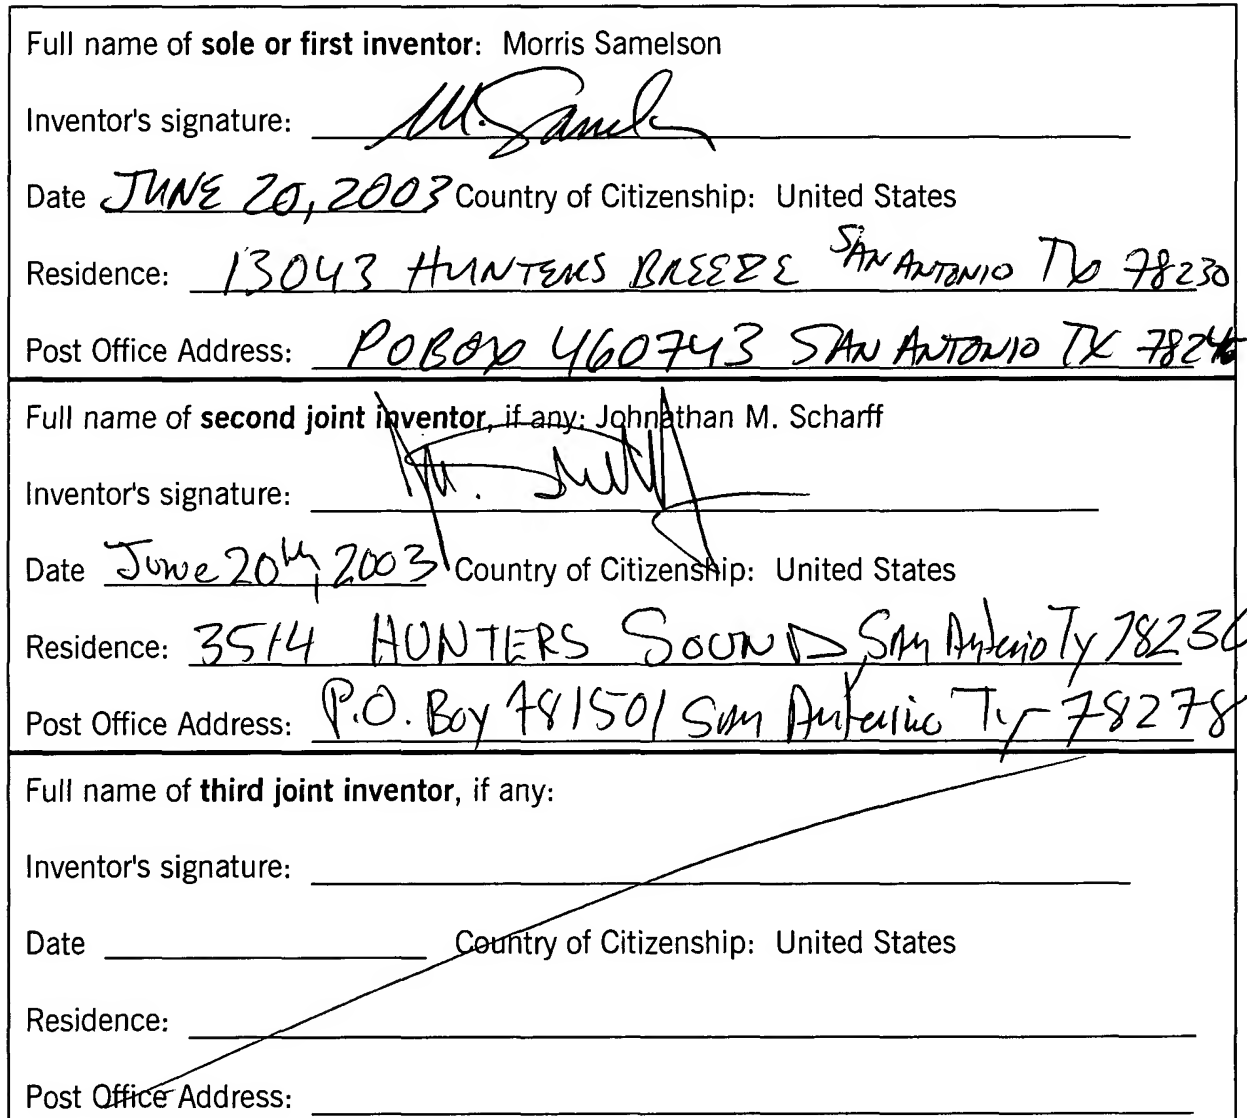 Full name of sole or first inventor: Morris Samelson
Inventor's signature: M. Samels
Date JUNE 20, 2003 Country of Citizenship: United States
Residence: 13043 HUNTERS BREEZE SAN ANTONIO TX 78230
Post Office Address: PO BOX 460743 SAN ANTONIO TX 78246
Full name of second joint inventor, if any: Johnathan M. Scharff
Inventor's signature:
Date June 20th, 2003 Country of Citizenship: United States
Residence: 3514 HUNTERS SOUND, San Antonio Tx 78230
Post Office Address: P.O. Box 781501 San Antonio Tx 78278
Full name of third joint inventor, if any:
Inventor's signature:
Date Country of Citizenship: United States
Residence:
Post Office Address: